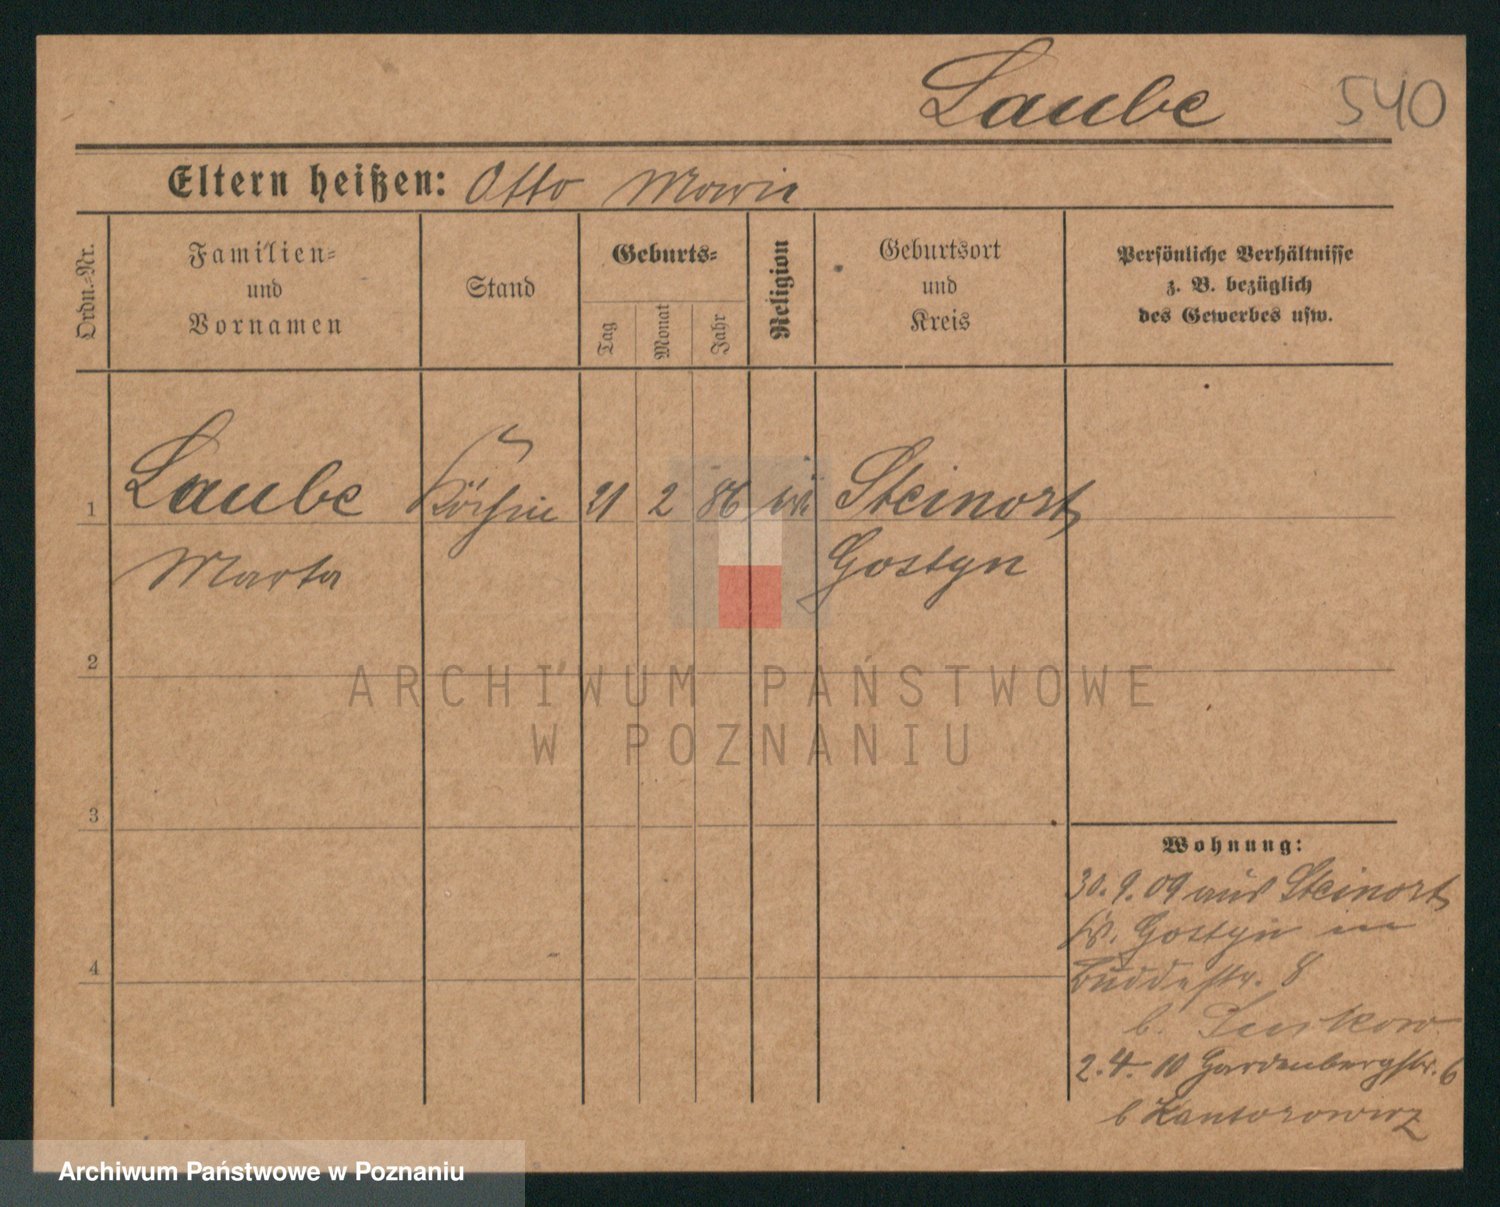 Laube 540
Eltern heißen: Otto Marie
Ordn.-Nr.
Familien-
und
Vornamen
Stand
Geburts-
Tag
Monat
Jahr
Religion
Geburtsort
und
Kreis
Persönliche Verhältnisse
z. B. bezüglich
des Gewerbes usw.
1 Laube Köchin 21 2 86 Steinort
Marta Gostyn
2
3
4
Wohnung:
30.9.09 aus Steinort
Kr. Gostyn in
Buddestr. 8
b.
2.4.10 Hardenbergstr. 6
b Kantorowicz
ARCHIWUM PAŃSTWOWE
W POZNANIU
Archiwum Państwowe w Poznaniu